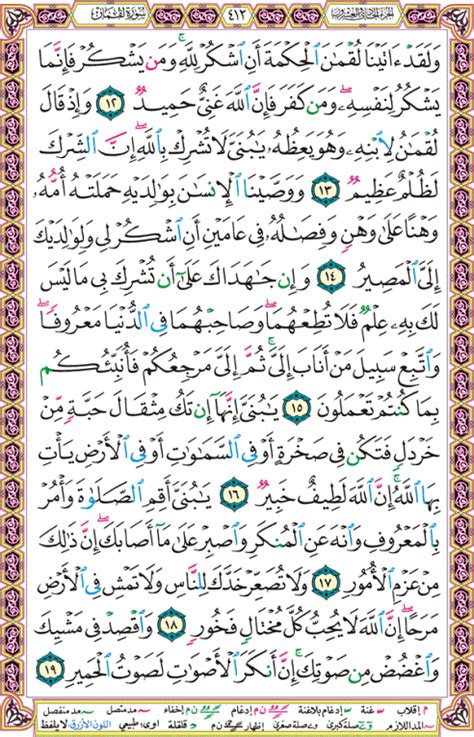 سورة لقمان ٤١٢ الجزء الحادي والعشرون
وَلَقَدْ ءَاتَيْنَا لُقْمَٰنَ ٱلْحِكْمَةَ أَنِ ٱشْكُرْ لِلَّهِۚ وَمَن يَشْكُرْ فَإِنَّمَا
يَشْكُرُ لِنَفْسِهِۦۖ وَمَن كَفَرَ فَإِنَّ ٱللَّهَ غَنِىٌّ حَمِيدٌ ١٢ وَإِذْ قَالَ
لُقْمَٰنُ لِٱبْنِهِۦ وَهُوَ يَعِظُهُۥ يَٰبُنَىَّ لَا تُشْرِكْ بِٱللَّهِۖ إِنَّ ٱلشِّرْكَ
لَظُلْمٌ عَظِيمٌ ١٣ وَوَصَّيْنَا ٱلْإِنسَٰنَ بِوَٰلِدَيْهِ حَمَلَتْهُ أُمُّهُۥ
وَهْنًا عَلَىٰ وَهْنٍ وَفِصَٰلُهُۥ فِى عَامَيْنِ أَنِ ٱشْكُرْ لِى وَلِوَٰلِدَيْكَ
إِلَىَّ ٱلْمَصِيرُ ١٤ وَإِن جَٰهَدَاكَ عَلَىٰٓ أَن تُشْرِكَ بِى مَا لَيْسَ
لَكَ بِهِۦ عِلْمٌ فَلَا تُطِعْهُمَاۖ وَصَاحِبْهُمَا فِى ٱلدُّنْيَا مَعْرُوفًاۖ
وَٱتَّبِعْ سَبِيلَ مَنْ أَنَابَ إِلَىَّۚ ثُمَّ إِلَىَّ مَرْجِعُكُمْ فَأُنَبِّئُكُم
بِمَا كُنتُمْ تَعْمَلُونَ ١٥ يَٰبُنَىَّ إِنَّهَآ إِن تَكُ مِثْقَالَ حَبَّةٍ مِّنْ
خَرْدَلٍ فَتَكُن فِى صَخْرَةٍ أَوْ فِى ٱلسَّمَٰوَٰتِ أَوْ فِى ٱلْأَرْضِ يَأْتِ
بِهَا ٱللَّهُۚ إِنَّ ٱللَّهَ لَطِيفٌ خَبِيرٌ ١٦ يَٰبُنَىَّ أَقِمِ ٱلصَّلَوٰةَ وَأْمُرْ
بِٱلْمَعْرُوفِ وَٱنْهَ عَنِ ٱلْمُنكَرِ وَٱصْبِرْ عَلَىٰ مَآ أَصَابَكَۖ إِنَّ ذَٰلِكَ
مِنْ عَزْمِ ٱلْأُمُورِ ١٧ وَلَا تُصَعِّرْ خَدَّكَ لِلنَّاسِ وَلَا تَمْشِ فِى ٱلْأَرْضِ
مَرَحًاۖ إِنَّ ٱللَّهَ لَا يُحِبُّ كُلَّ مُخْتَالٍ فَخُورٍ ١٨ وَٱقْصِدْ فِى مَشْيِكَ
وَٱغْضُضْ مِن صَوْتِكَۚ إِنَّ أَنكَرَ ٱلْأَصْوَٰتِ لَصَوْتُ ٱلْحَمِيرِ ١٩
م إقلاب غنة إدغام بلاغنة ن م إدغام ن م إخفاء مد متصل مد منفصل
المد اللازم صلة كبرى صلة صغرى إظهار قلقلة اوى: طبيعي اللون الأزرق: لا يلفظ